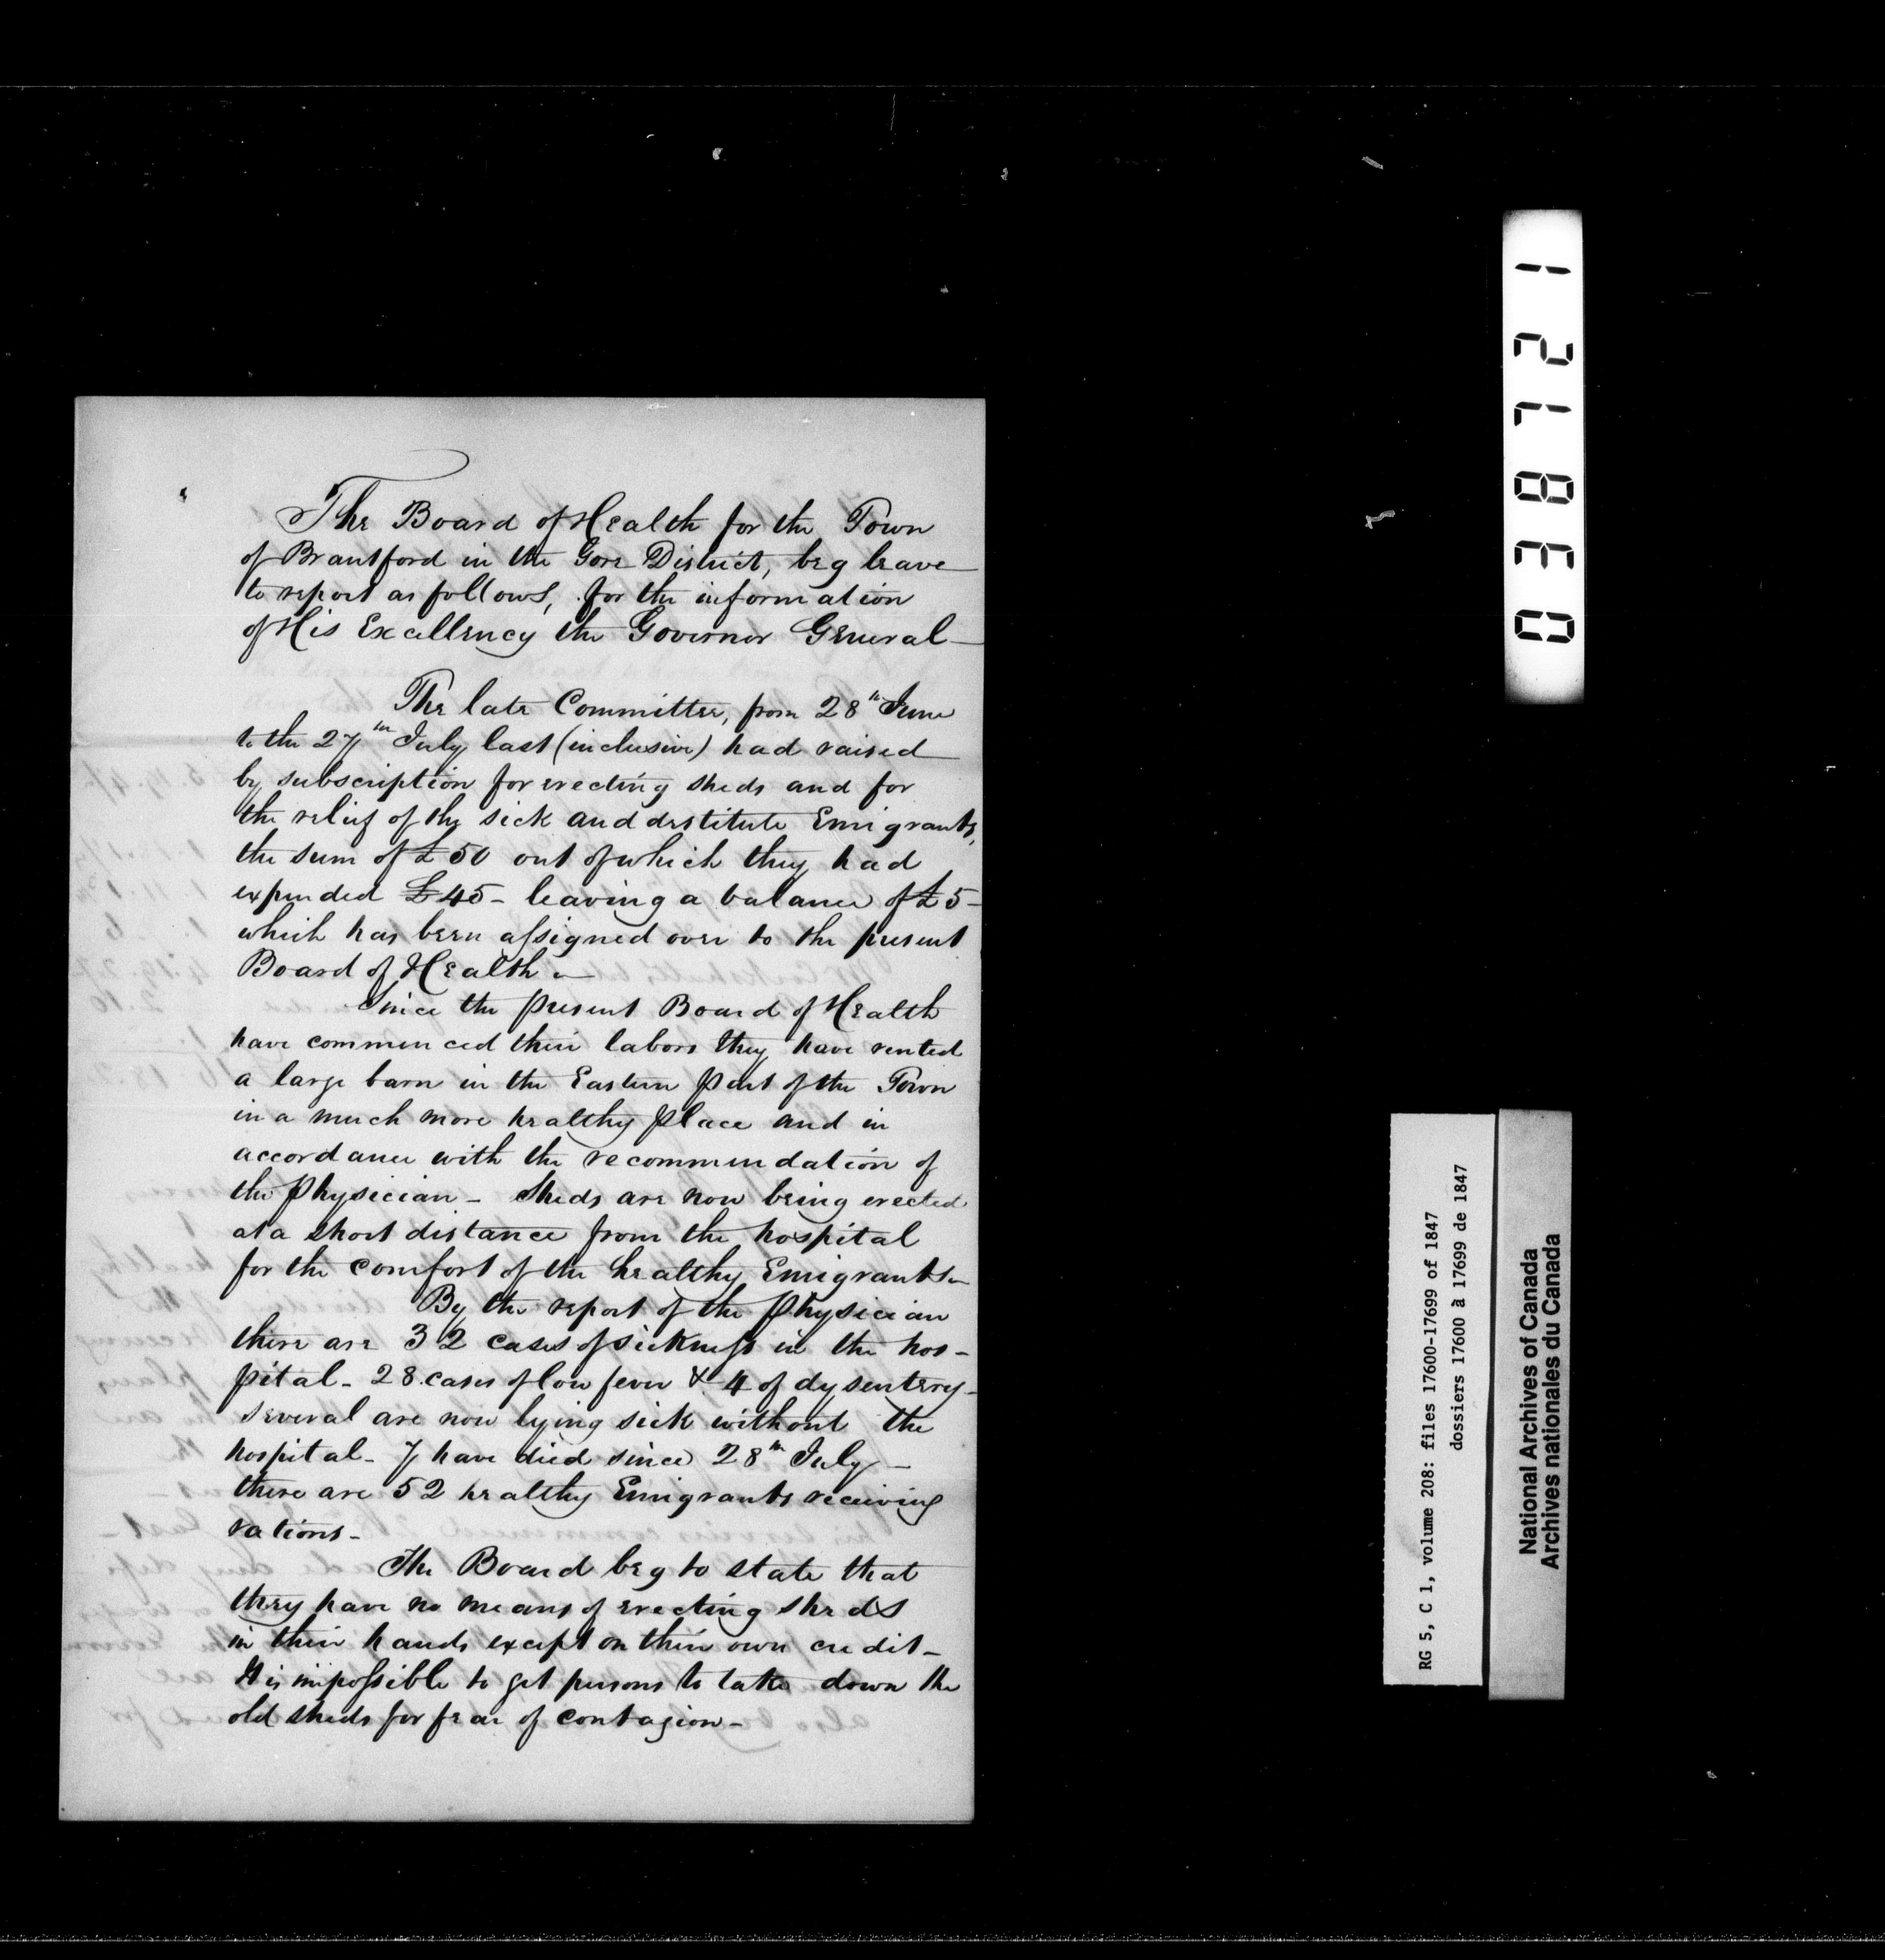 The Board of Health for the Town
of Brantford in the Gore District, beg leave
to report as follows, for the information
of His Excellency the Governor General —
The late Committee, from 28th June
to the 27th July last (inclusive) had raised
by subscription for erecting sheds and for
the relief of the sick and destitute Emigrants,
the sum of £50 out of which they had
expended £45 - leaving a balance of £5 -
which has been assigned over to the present
Board of Health —
Since the present Board of Health
have commenced their labors they have rented
a large barn in the Eastern part of the Town
in a much more healthy place and in
accordance with the recommendation of
the Physician - Sheds are now being erected
at a short distance from the hospital
for the comfort of the healthy Emigrants —
By the report of the Physician
there are 32 cases of sickness in the hos-
pital - 28 cases of low fever & 4 of dysentery -
several are now lying sick without the
hospital - 7 have died since 28th July —
there are 52 healthy Emigrants receiving
rations -
The Board beg to state that
they have no means of erecting sheds
in their hands except on their own credit -
It is impossible to get persons to take down the
old sheds for fear of contagion -
037821
RG 5, C 1, volume 208: files 17600-17699 of 1847
dossiers 17600 à 17699 de 1847
National Archives of Canada
Archives nationales du Canada